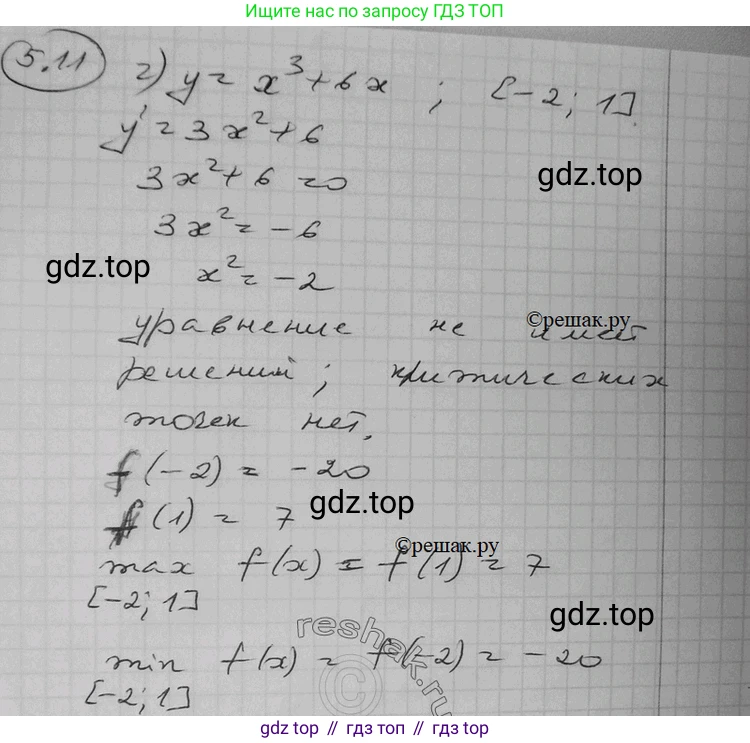 Ищите нас по запросу ГДЗ ТОП
5.11 г) y = x³ + 6x ; [-2; 1].
y' = 3x² + 6
3x² + 6 = 0
gdz.top
3x² = -6
gdz.top
x² = -2
уравнение не имеет
©решак.ру
решений; критических
точек нет.
f(-2) = -20
f(1) = 7
gdz.top
©решак.ру
max f(x) = f(1) = 7
[-2; 1]
gdz.top
reshak.ru
min f(x) = f(-2) = -20
[-2; 1]
©
gdz.top // гдз топ // gdz.top